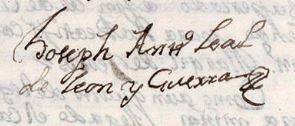 Joseph Antt.º Leal
de Leon y Guerra